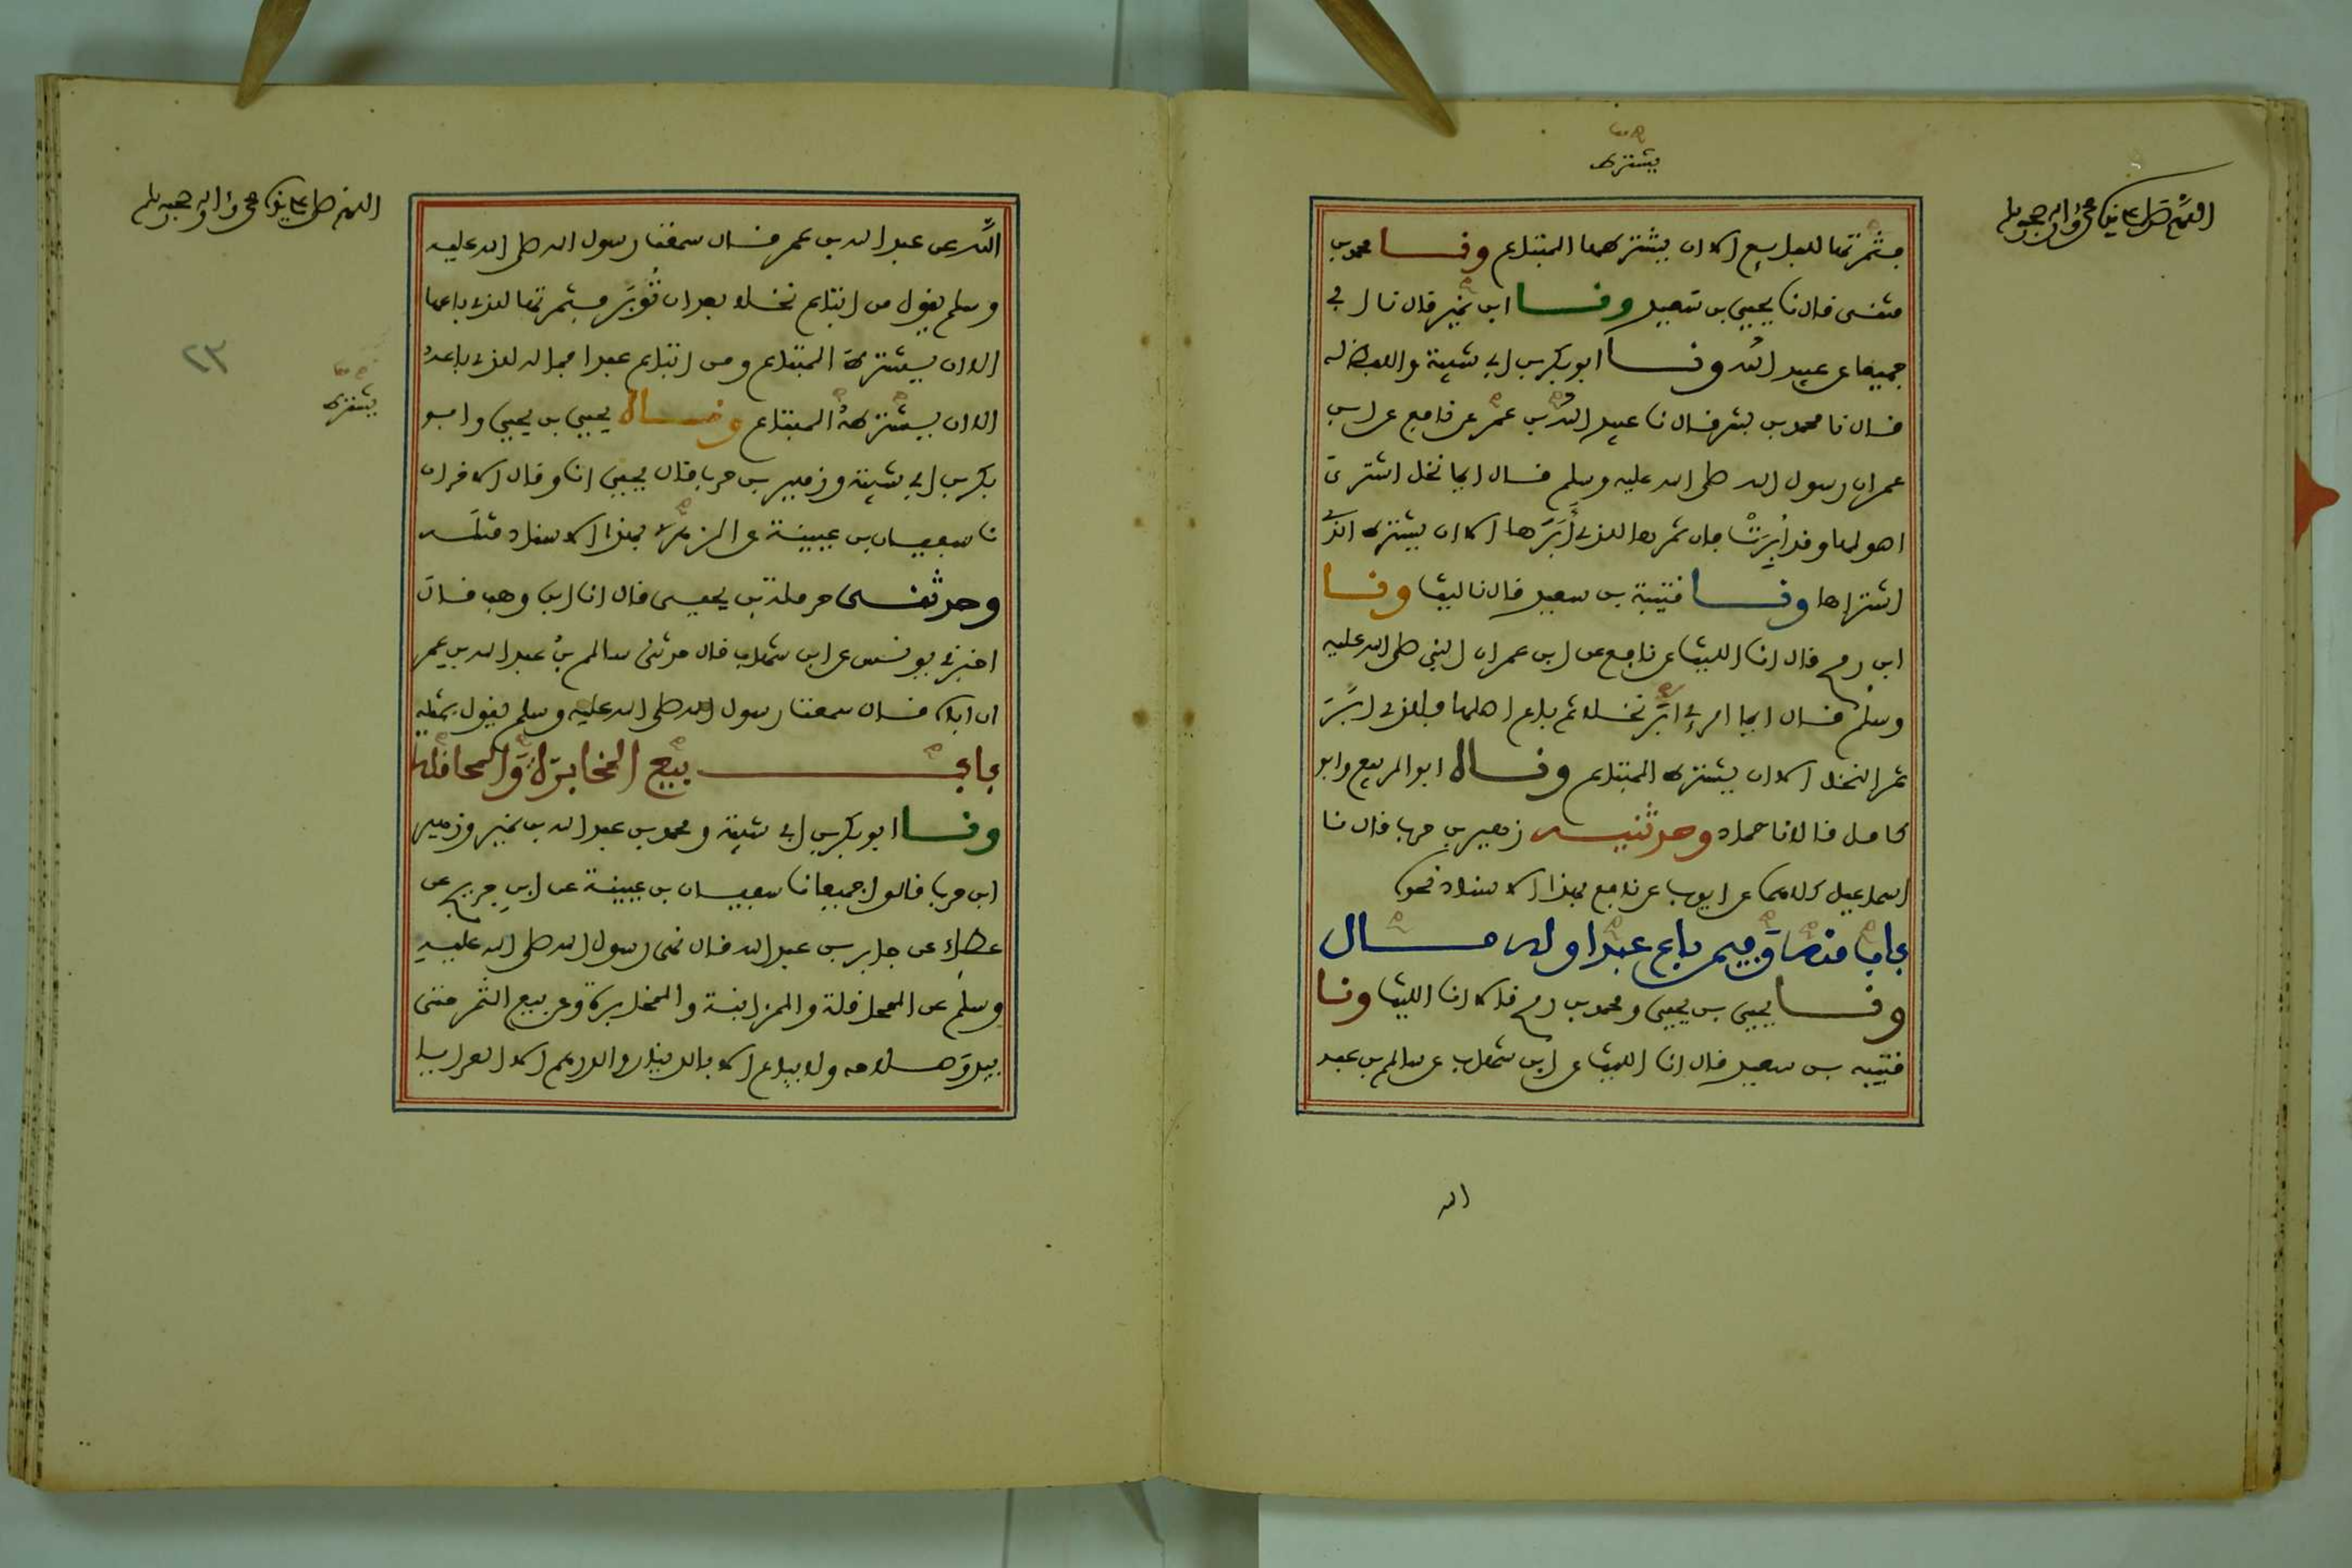 يشترط
اللهم صل على نبينا محمد واله وصحبه وسلم
فثمرتها للبايع الا ان يشترطها المبتاع ونا محمد بن
مثنى قال نا يحيى بن سعيد ونا ابن نمير قال نا ابي
جميعا عن عبيد الله ونا ابو بكر بن ابي شيبة واللفظ له
قال نا محمد بن بشر قال نا عبيد الله بن عمر عن نافع عن ابن
عمر ان رسول الله صلى الله عليه وسلم قال ايما نخل اشترى
اصولها وقد أُبِرَتْ فان ثمرها للذي أَبَّرَها الا ان يشترط الذي
اشتراها ونا قتيبة بن سعيد قال نا ليث ونا
ابن رمح قال انا الليث عن نافع عن ابن عمر ان النبي صلى الله عليه
وسلم قال ايما امرئ ابّر نخلا ثم باع اصلها فللذي ابَّرَ
ثمر النخل الا ان يشترط المبتاع وناه ابو الربيع وابو
كامل قالا نا حماد وحدثنيه زهير بن حرب قال نا
اسماعيل كلاهما عن ايوب عن نافع بهذا الاسناد نحوه
باب منه وفيمن باع عبدا وله مال
ونا يحيى بن يحيى ومحمد بن رمح قالا انا الليث ونا
قتيبه بن سعيد قال نا الليث عن ابن شهاب عن سالم بن عبد
الله
اللهم صل على نبينا محمد واله وصحبه وسلم
٢٣
يشترط
اللَّه عن عبد الله بن عمر قال سمعت رسول الله صلى الله عليه
وسلم يقول من ابتاع نخلا بعد ان تُوبَّر فثمرتها للذي باعها
الا ان يشترطه المبتاع ومن ابتاع عبدا فماله للذي باعه
الا ان يشترطهُ المبتاع وناه يحيى بن يحيى وابو
بكر بن ابي شيبة وزهير بن حرب قال يحيى انا وقال الاخران
نا سفيان بن عيينة عن الزهري بهذا الاسناد مثله
وحدثنى حرملة بن يحيى قال انا ابن وهب قال
اخبرني يونس عن ابن شهاب قال حدثنى سالم بنُ عبد الله بن عمر
ان اباه قال سمعت رسول الله صلى الله عليه وسلم يقول بمثله
باب بيع المخابرة والمحاقلة
ونا ابو بكر بن ابي شيبة ومحمد بن عبد الله بن نمير وزهير
ابن حرب قالوا جميعا نا سفيان بن عيينة عن ابن جريج عن
عطاء عن جابر بن عبد الله قال نهى رسول الله صلى الله عليه
وسلم عن المحاقلة والمزابنة والمخابرة وعن بيع الثمر حتى
يبدوَ صلاحه ولا يباع الا بالدينار والدرهم الا العرايا